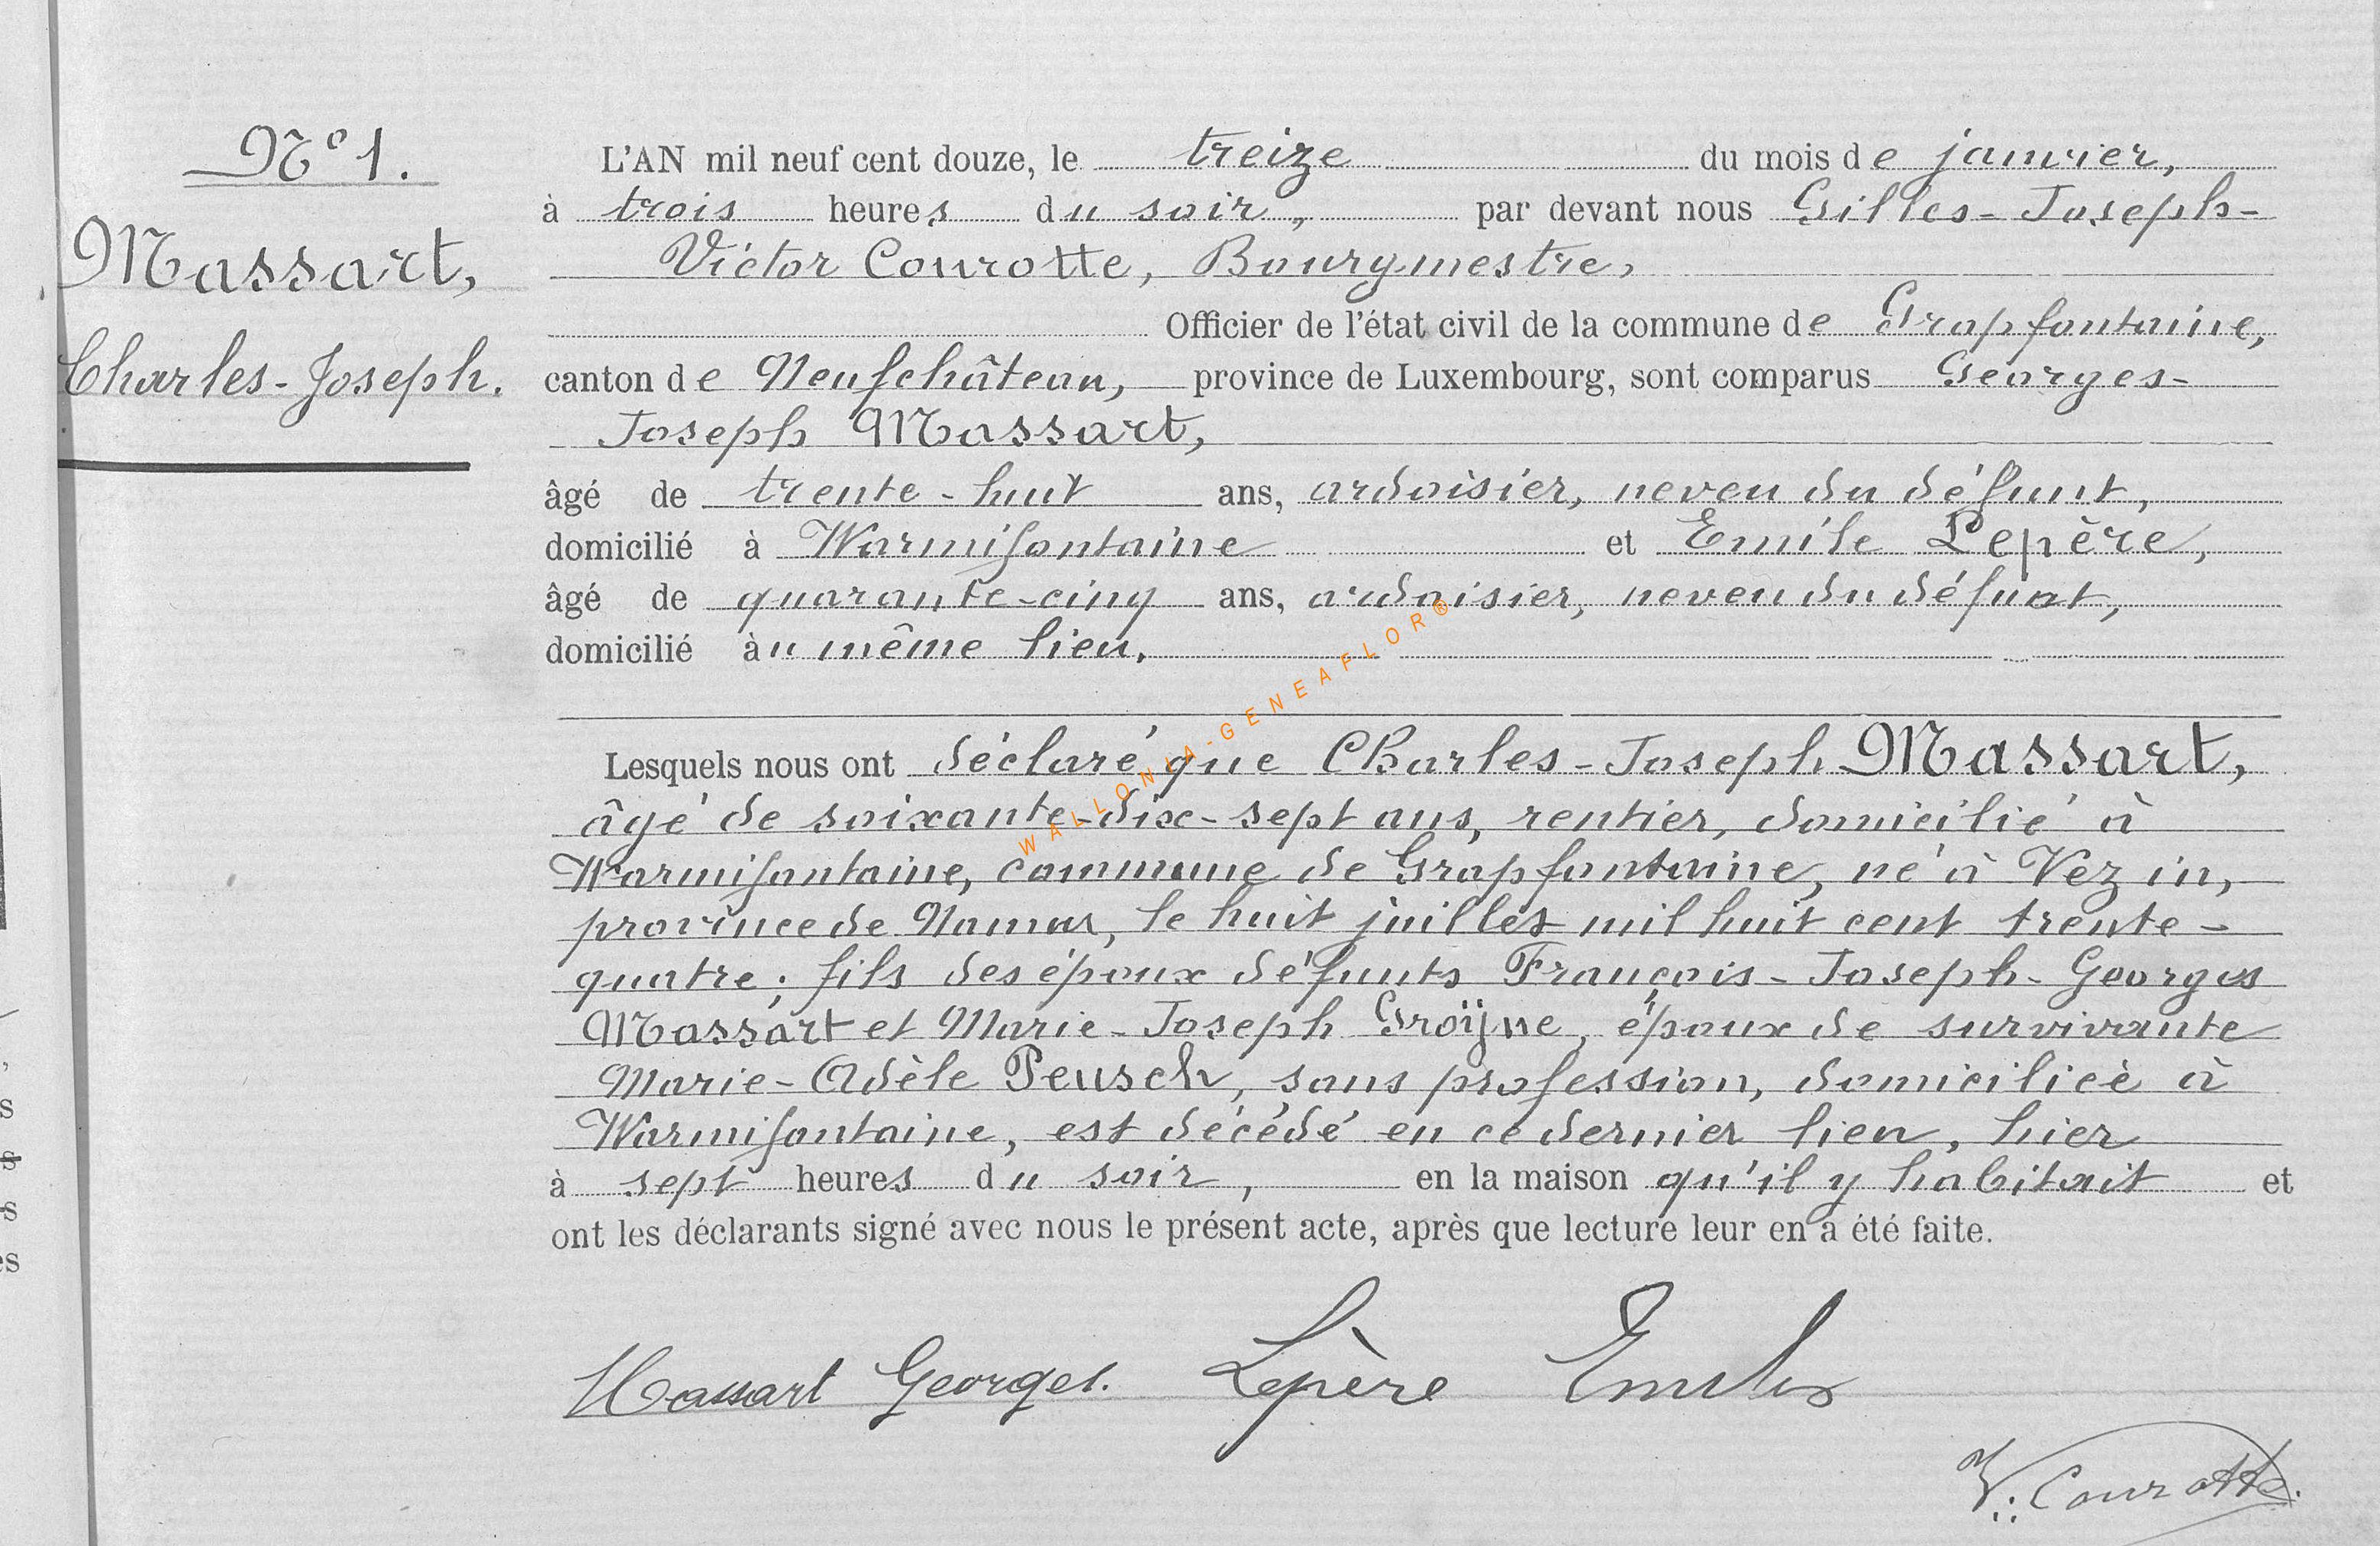 N° 1.
Massart,
Charles-Joseph.
L'AN mil neuf cent douze, le treize du mois de janvier,
à trois heures du soir, par devant nous Gilles-Joseph-
Victor Courotte, Bourgmestre,
Officier de l'état civil de la commune de Grapfontaine,
canton de Neufchâteau, province de Luxembourg, sont comparus Georges-
Joseph Massart,
âgé de trente-huit ans, ardoisier, neveu du défunt,
domicilié à Warmifontaine et Emile Lepère,
âgé de quarante-cinq ans, ardoisier, neveu du défunt,
domicilié au même lieu.
Lesquels nous ont déclaré que Charles-Joseph Massart,
âgé de soixante-dix-sept ans, rentier, domicilié à
Warmifontaine, commune de Grapfontaine, né à Vezin,
province de Namur, le huit juillet mil huit cent trente-
quatre; fils des époux défunts François-Joseph-Georges
Massart et Marie-Joseph Groÿne, époux de survivante
Marie-Adèle Peusch, sans profession, domiciliée à
Warmifontaine, est décédé en ce dernier lieu, hier
à sept heures du soir, en la maison qu'il y habitait et
ont les déclarants signé avec nous le présent acte, après que lecture leur en a été faite.
Massart Georges. Lepère Emile
V. Courotte.
WALLONIA-GENEAFLOR®